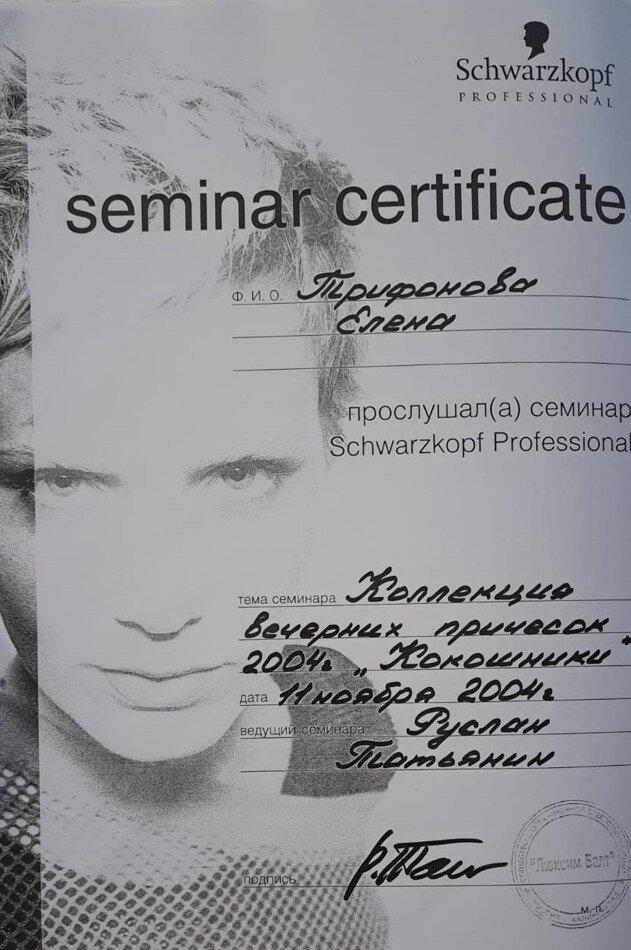 Schwarzkopf
PROFESSIONAL
seminar certificate
Ф. И. О. Трифонова
Елена
прослушал(а) семинар
Schwarzkopf Professional
тема семинара Коллекция
вечерних причесок
2004г. „Кокошники"
дата 11 ноября 2004г.
ведущий семинара Руслан
Татьянин
подпись
"Люксим Балт"
м. п.